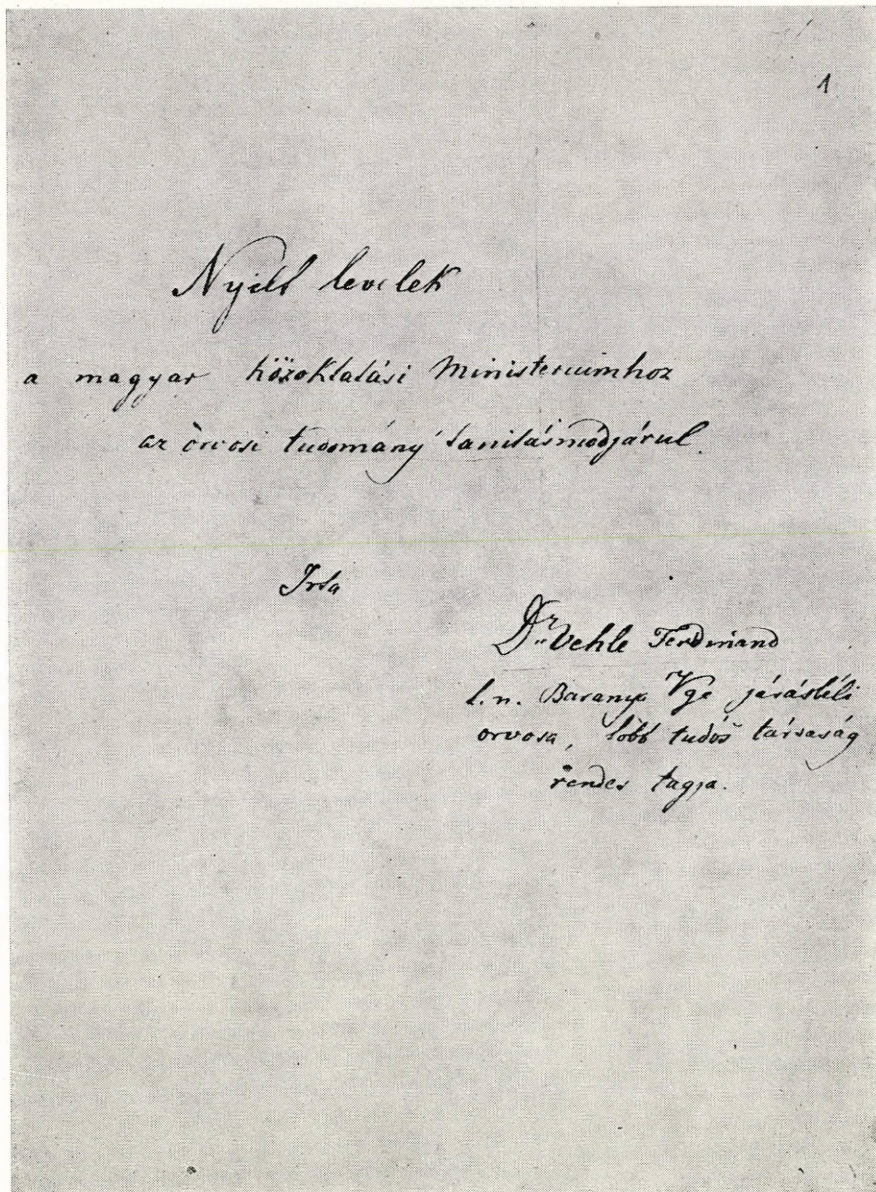 1
Nyilt levelek
a magyar közoktatási Ministeriumhoz
az orvosi tudomány tanitásmódjárul.
Irta
Dr. Vehle Ferdinand
t. n. Baranya Vge járásbéli
orvosa, több tudós társaság
rendes tagja.